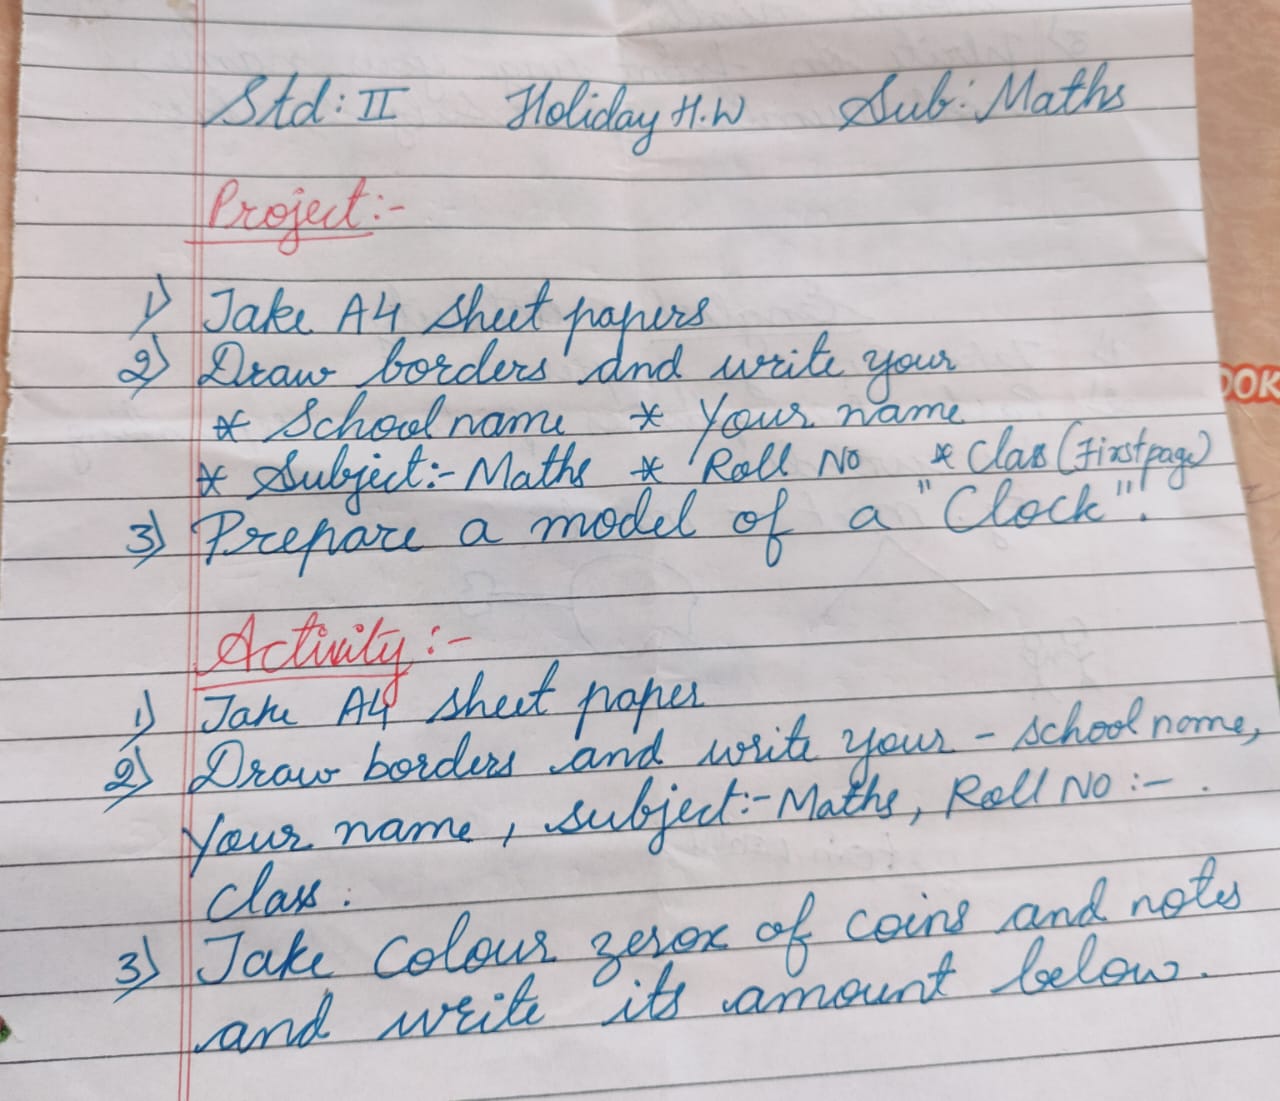 Std: II Holiday H.W Sub: Maths
Project:-
1) Take A4 sheet papers
2) Draw borders and write your
* School name * Your name
* Subject:- Maths * Roll No * Class (First page)
3) Prepare a model of a "Clock".
Activity:-
1) Take A4 sheet paper
2) Draw borders and write your - school name,
Your name, subject:- Maths, Roll No :- .
Class:
3) Take Colour zerox of coins and notes
and write its amount below.
OOK